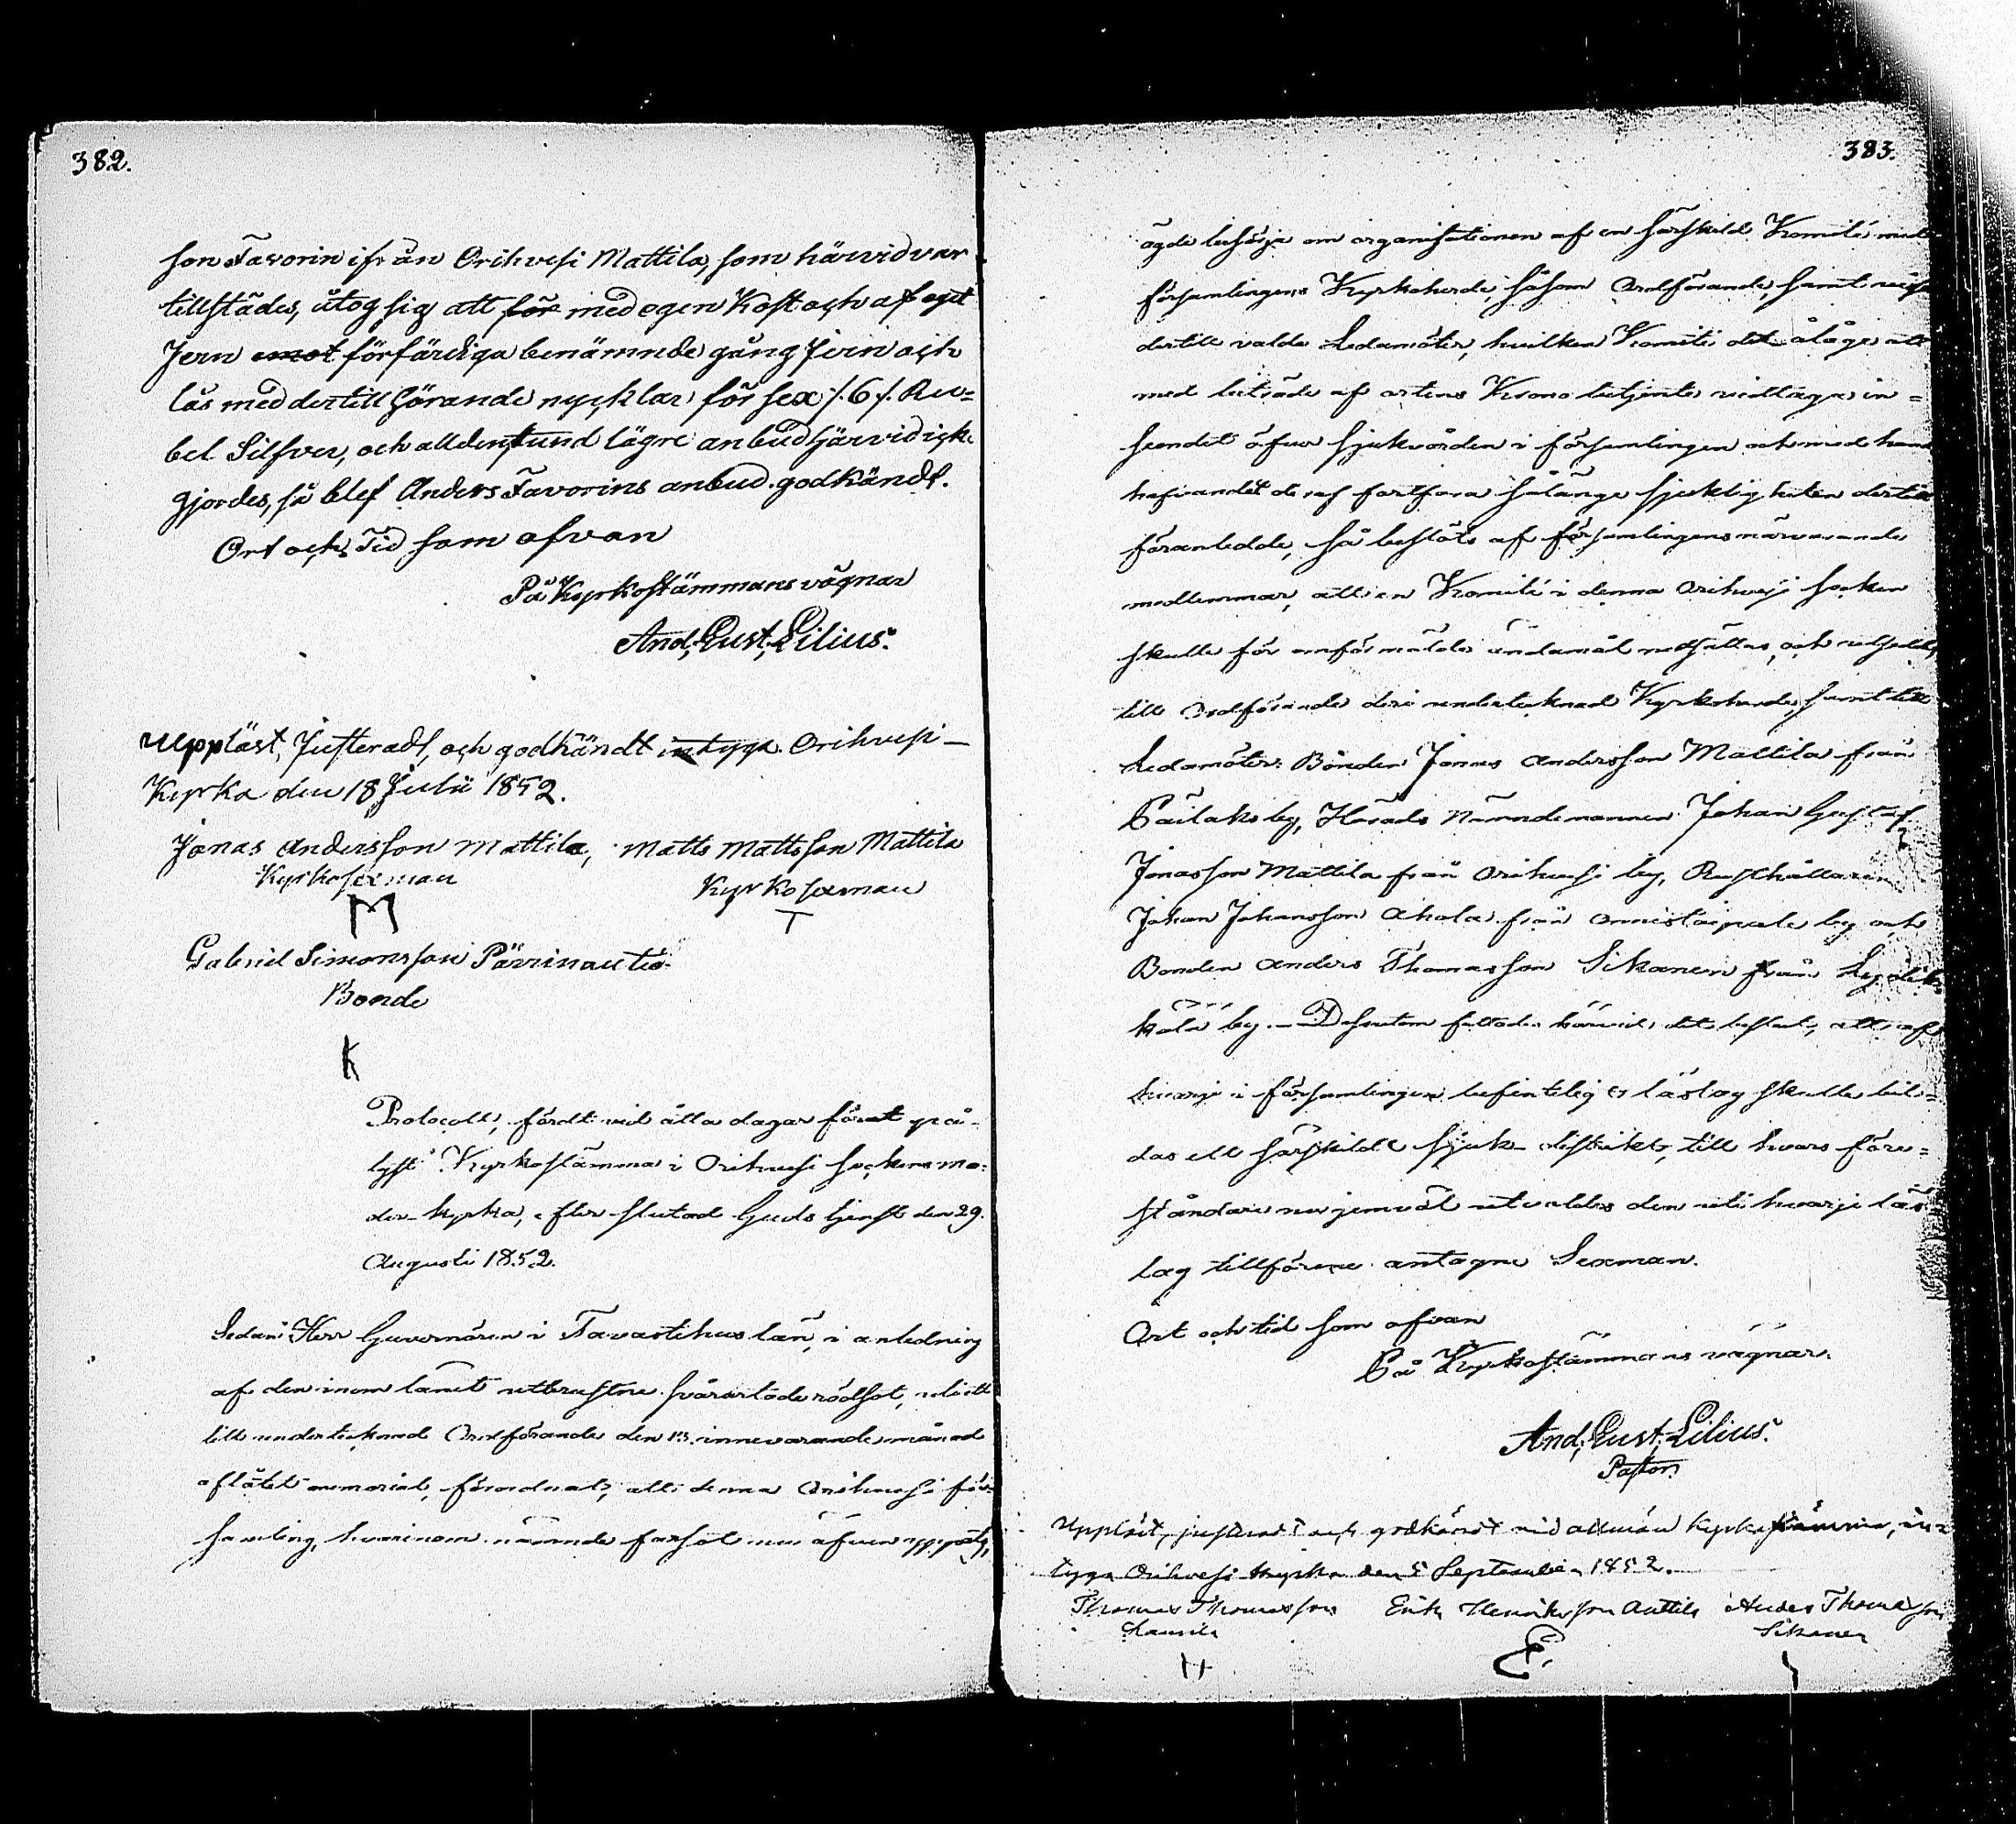 382.
son Favorin ifrån Orihvesi Mattila, som härvid var
tillstädes, åtog sig att för med egen Kost och af eget
Jern emot förfärdiga benämnde gång jern och
lås med dertill hörande nycklar för sex /. 6 /. Ru=
bel Silfver, och alldenstund lägre anbud härvid icke
gjordes, så blef Anders Favorins anbud godkändt.
Ort och Tid som ofvan
På Kyrkostämmans vägnar
And. Gust. Lilius.
Uppläst, Justeradt, och godkändt intyga. Orihvesi
Kyrka den 18 Julii 1852.
Jonas Andersson Mattila, Matts Mattsson Mattila
Kyrkosexman Kyrkosexman
M T
Gabriel Simonsson Pärrinautio
Bonde
K
Protocoll, fördt vid åtta dagar förut på-
lyst Kyrkostämma i Orihvesi Sockens mo-
der-kyrka, efter slutad Guds tjenst den 29.
Augusti 1852.
Sedan Herr Guvernören i Tavastehus län, i anledning
af den inom länet utbrustne svårartade rödsot, uti ett
till undertecknad Ordförande den 13. innevarande månad
aflåtet memorial, förordnat, att denna Orihvesi för-
samling, hvarinom nämnde farsot nu äfven uppstått,
383.
ägde besörja om organisationen af en särskild Komité med
församlingens Kyrkoherde, såsom Ordförande, samt
dertill valde Ledamöter, hvilken Komité det ålåge att
med biträde af ortens Krono betjente vidtaga in=
seendet öfver sjukvården i församlingen och med
deraf fortfara sålänge sjukligheten dertill
föranledde, så beslöts af församlingens närvarande
medlemmar, att en Komité i denna Orihvesi socken
skulle för anförmälde ändamål nedsättas, och utsedd,
till Ordförande deri undertecknad Kyrkoherde, samt till
Ledamöter: Bonden Jonas Andersson Mattila från
Päilaks by, Härads Nämndemannen Johan Gustaf
Jonasson Mattila från Orihvesi by, Rusthållaren
Johan Johansson Ahola från Onnistaipale by och
Bonden Anders Thomasson Sikanen från
by. - Dessutom fattades härvid det beslut, att af
hvarje i församlingen befinteligt läslag skulle bil=
das ett särskildt sjuk-distrikt, till hvars före=
ståndare nu jemväl utvaldes den uti hvarje läs=
lag tillförene antagne Sexman.
Ort och tid som ofvan
På Kyrkostämmans vägnar.
And. Gust. Lilius.
Pastor.
Uppläst, justerat och godkändt vid allmän Kyrkostämma, in=
tyga Orihvesi Kyrka den 5 September 1852.
Thomas Thomasson Erik Henriksson Anttila Anders Thomasson
Sikanen
H E.